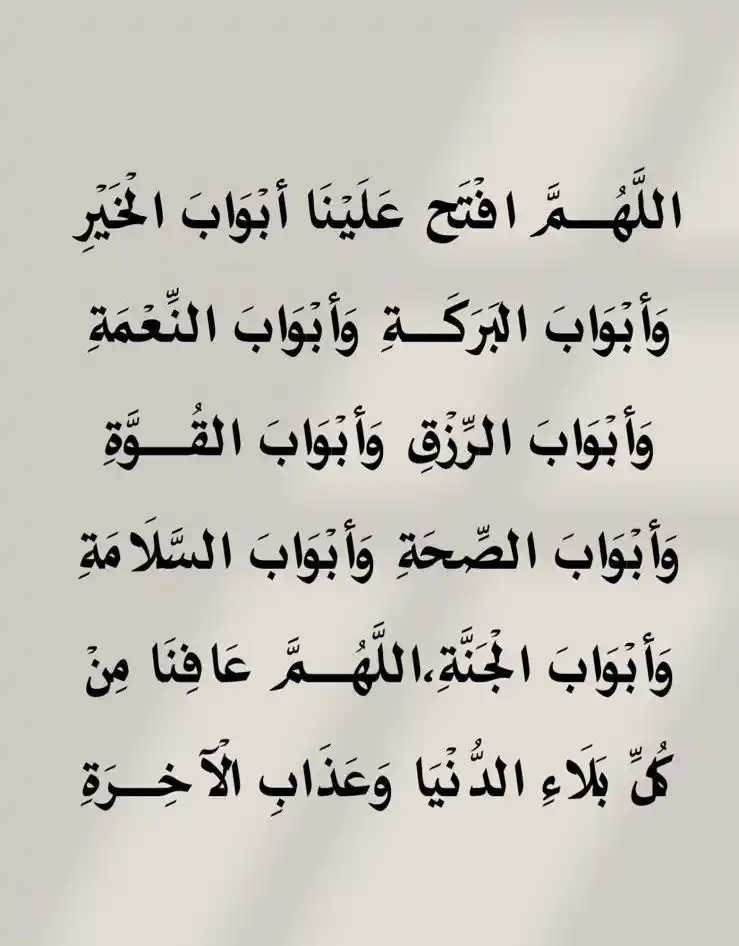 اللَّهُـــمَّ افْتَح عَلَيْنَا أَبْوَابَ الْخَيْرِ
وَأَبْوَابَ البَرَكَـــةِ وَأَبْوَابَ النِّعْمَةِ
وَأَبْوَابَ الرِّزْقِ وَأَبْوَابَ القُـــوَّةِ
وَأَبْوَابَ الصِّحَةِ وَأَبْوَابَ السَّلَامَةِ
وَأَبْوَابَ الْجَنَّةِ،اللَّهُـــمَّ عَافِنَا مِنْ
كُلِّ بَلَاءِ الدُّنْيَا وَعَذَابِ الْآخِـــرَةِ